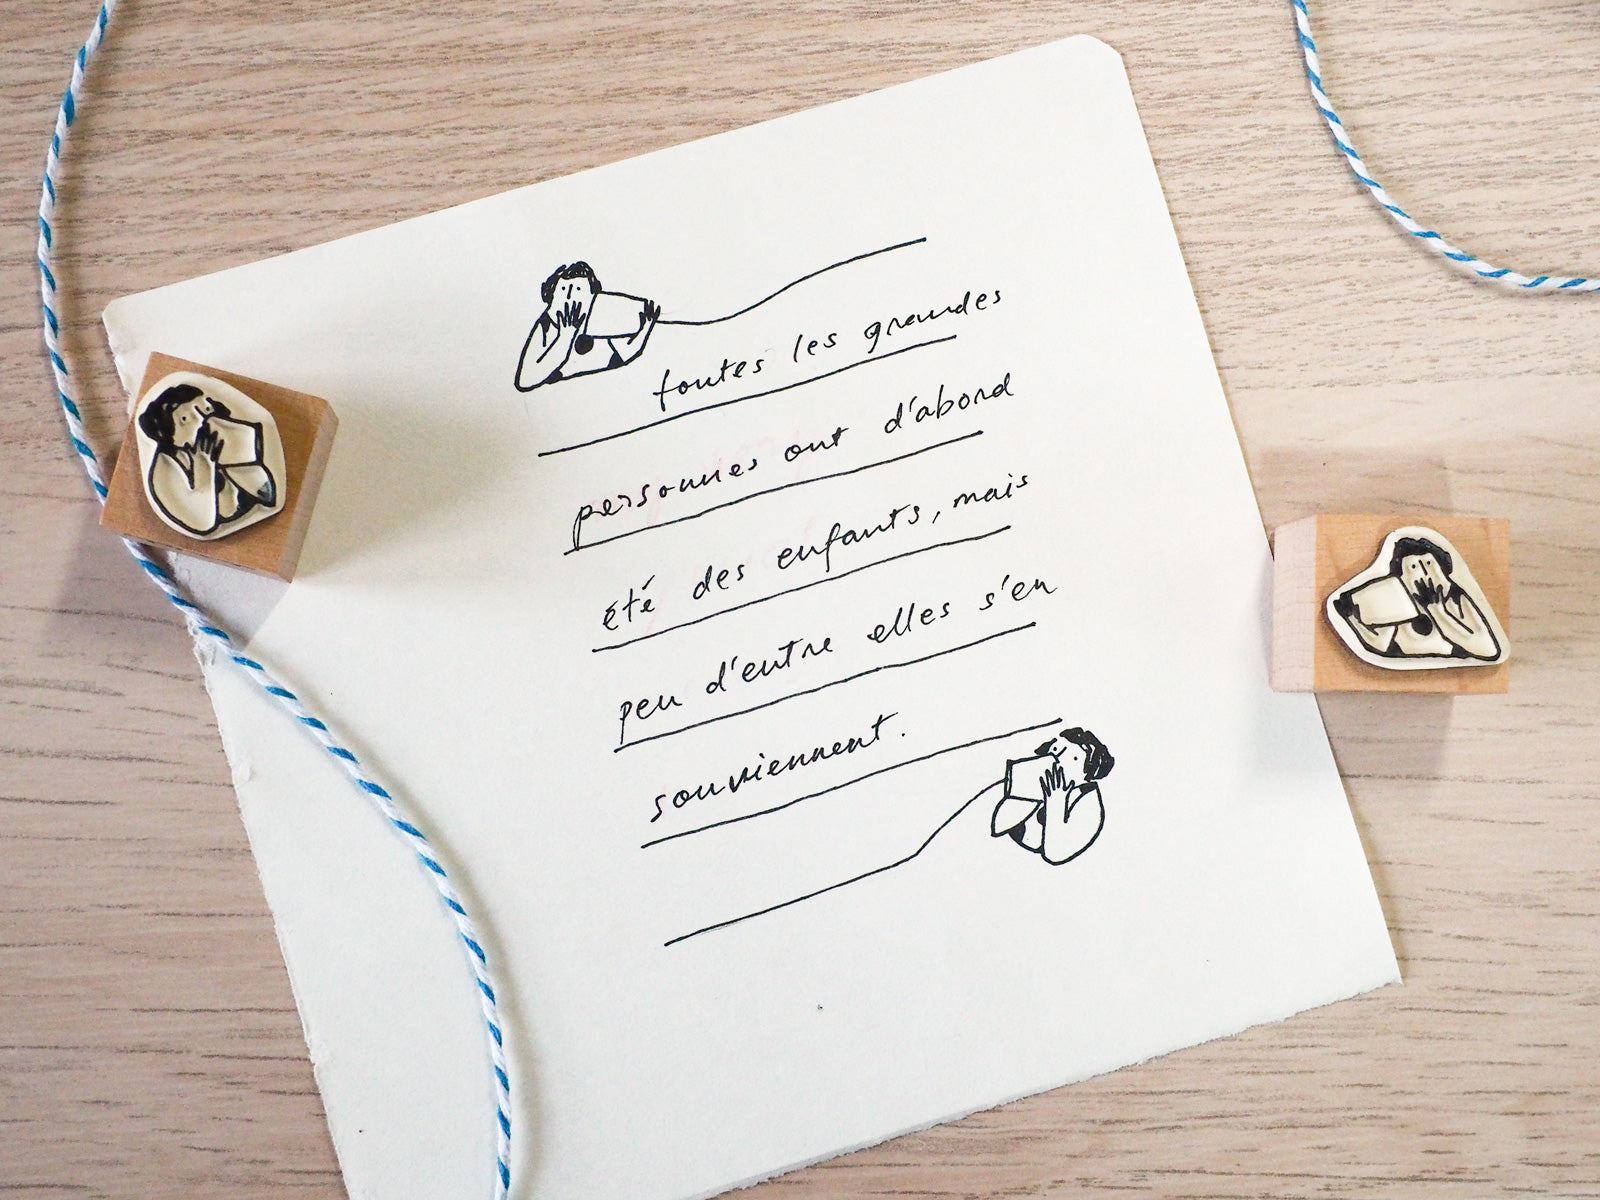 toutes les grandes
personnes ont d'abord
été des enfants, mais
peu d'entre elles s'en
souviennent.